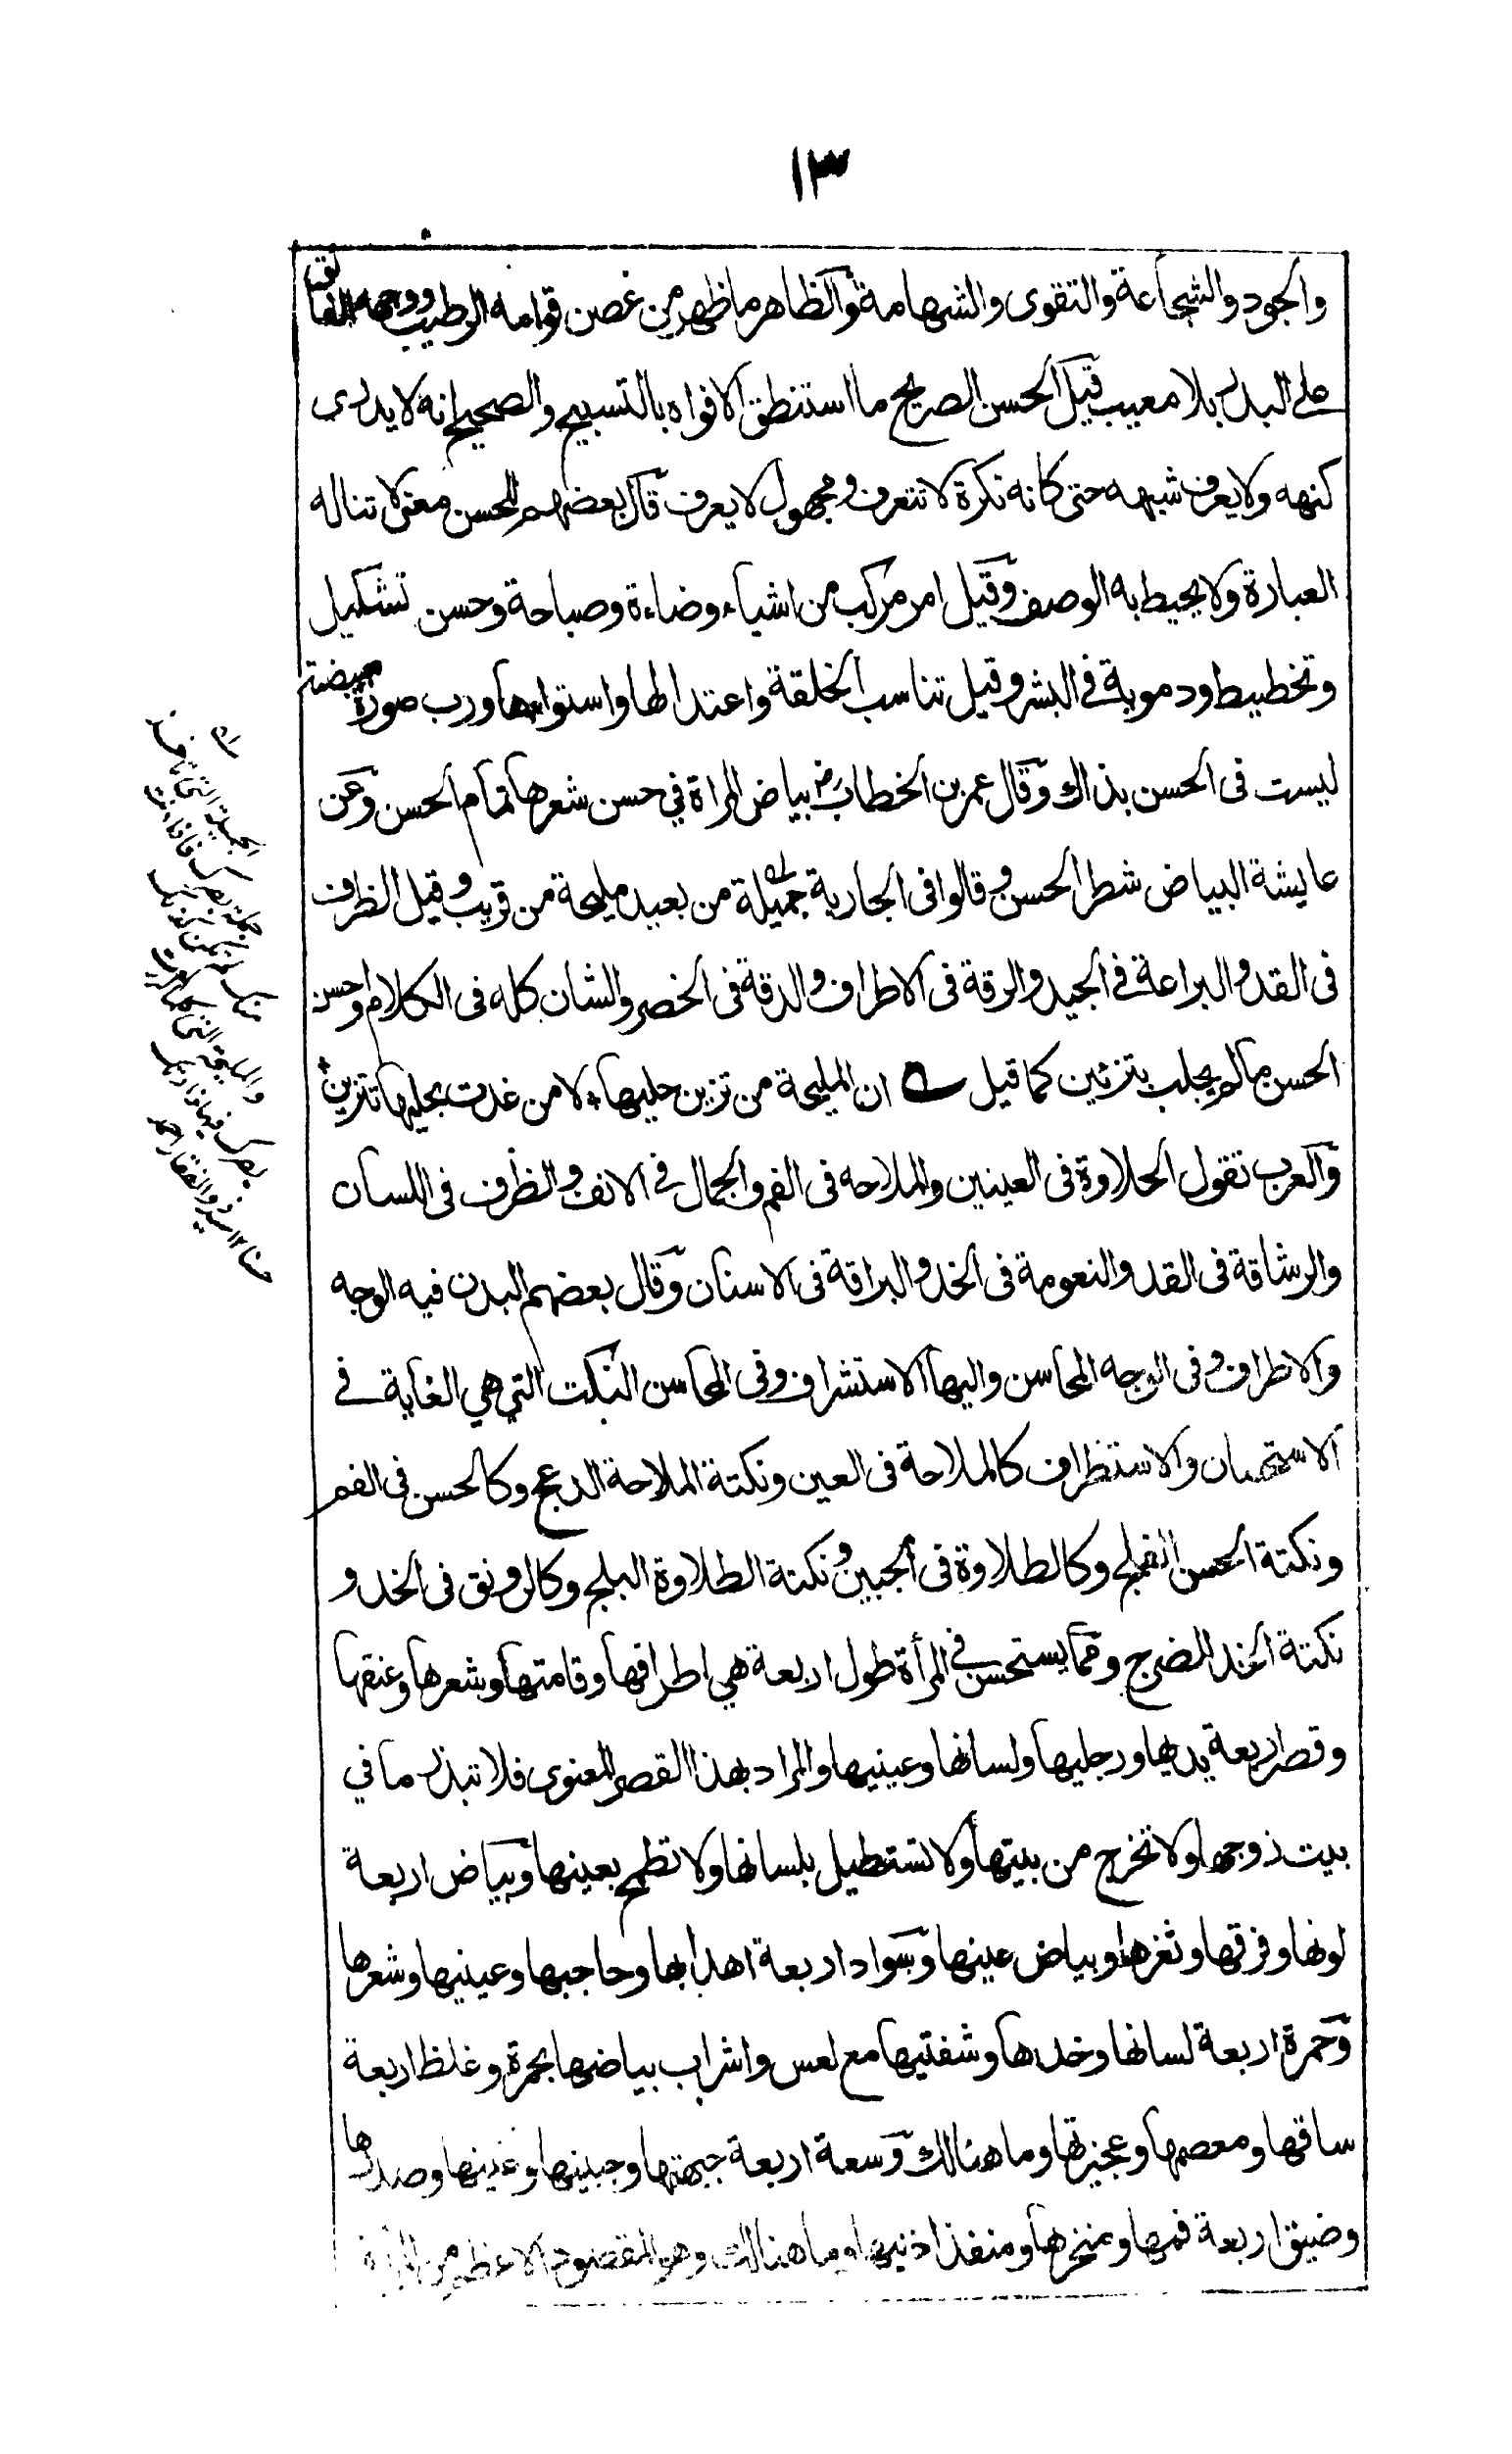 ١٣
والجود والشجاعة والتقوى والشهامة والظاهر ما ظهر من غصن قوامه الرطيب ووجهه الفائق
على البدر بلا معيب قيل الحسن الصريح ما استنطق الافواه بالتسبيح والصحيح انه لا يدرى
كنهه ولا يعرف شبهه حتى كانه نكرة لا تتعرف ومجهول لا يعرف قال بعضهم للحسن معنى لا تناله
العبارة ولا يحيط به الوصف وقيل امر مركب من اشياء وضاءة وصباحة وحسن تشكيل
وتخطيط ودموية فى البشر وقيل تناسب الخلقة واعتدالها واستواءها ورب صورة مبيضة
ليست فى الحسن بذاك وقال عمر بن الخطاب رض بياض المراة في حسن شعرها تمام الحسن وعن
عايشة البياض شطر الحسن وقالوا فى الجارية جميلة من بعيد مليحة من قريب وقيل الظرف
فى القد والبراعة فى الجيد والرقة فى الاطراف والدقة فى الخصر والشان كله فى الكلام واحسن
الحسن ما لم يجلب بتزئين كما قيل ان المليحة من تزين حليها لا من غدت بحليها تتزين
والعرب تقول الحلاوة فى العينين والملاحه فى الفم والجمال فى الانف والظرف فى اللسان
والرشاقة فى القد والنعومة فى الخد والبراقة فى الاسنان وقال بعضهم البدن فيه الوجه
والاطراف وفى الوجه المحاسن واليها الاستشراف وفى المحاسن النكت التي هي الغاية فے
الاستحسان والاستظراف كالملاحة فى العين ونكتة الملاحة الدعج وكالحسن فى الفم
ونكتة الحسن الفلج وكالطلاوة فى الجبين ونكتة الطلاوة البلج وكالرونق فى الخد و
نكتة الخد المضرج ومما يستحسن فى المرأة طول اربعة هي اطرافها وقامتها وشعرها وعنقها
وقصر اربعة يديها ورجليها ولسانها وعينيها والمراد بهذا القصر المعنوى فلا تبذر ما في
بيت زوجها ولا تخرج من بيتها ولا تستطيل بلسانها ولا تطمح بعينها وبياض اربعة
لونها وفرقها وثغرها وبياض عينها وسواد اربعة اهدابها وحاجبها وعينيها وشعرها
وحمرة اربعة لسانها وخدها وشفتيها مع لعس واشراب بياضها بحمرة وغلظ اربعة
ساقها ومعصمها وعجيزتها وما هنالك وسعة اربعة جبهتها وجبينها وعينها وصدرها
وضيق اربعة فمها ومنخرها ومنفذ اذنيها وما هنالك وهو المقصود الاعظم من